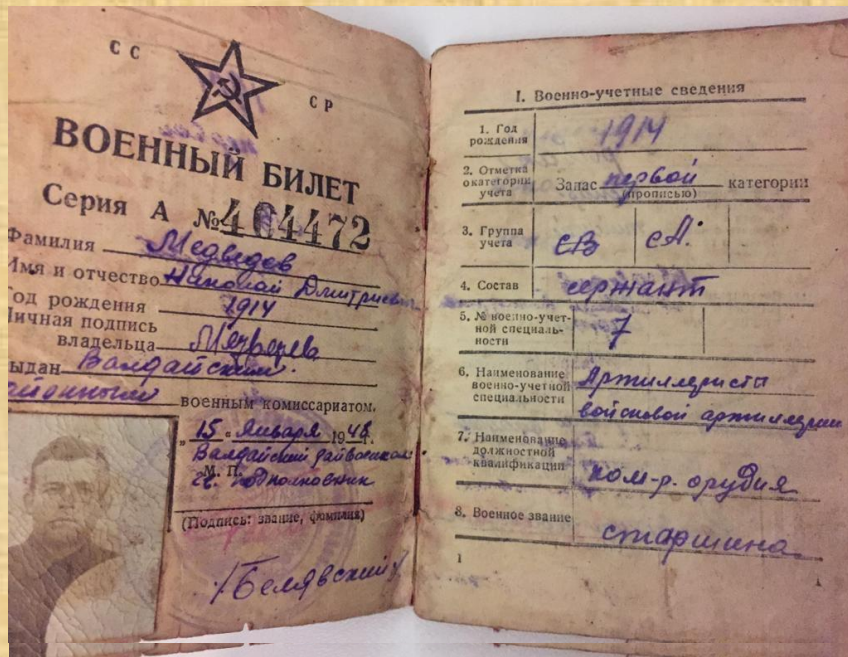 СССР
ВОЕННЫЙ БИЛЕТ
Серия А №464472
Фамилия Медведев
Имя и отчество Николай Дмитриевич
Год рождения 1914
Личная подпись
владельца
выдан Валдайским
районным военным комиссариатом.
"15" января 1948 г.
Валдайский райвоенком
М. П.
подполковник
(Подпись: звание, фамилия)
/Белявский/
I. Военно-учетные сведения
1. Год рождения
1914
2. Отметка о категории учета
Запас первой категории
(прописью)
3. Группа учета
СВ СА.
4. Состав
сержант
5. № военно-учетной специальности
7
6. Наименование военно-учетной специальности
Артиллеристы
войсковой артиллерии
7. Наименование должностной квалификации
ком-р. орудия
8. Военное звание
старшина
1
1